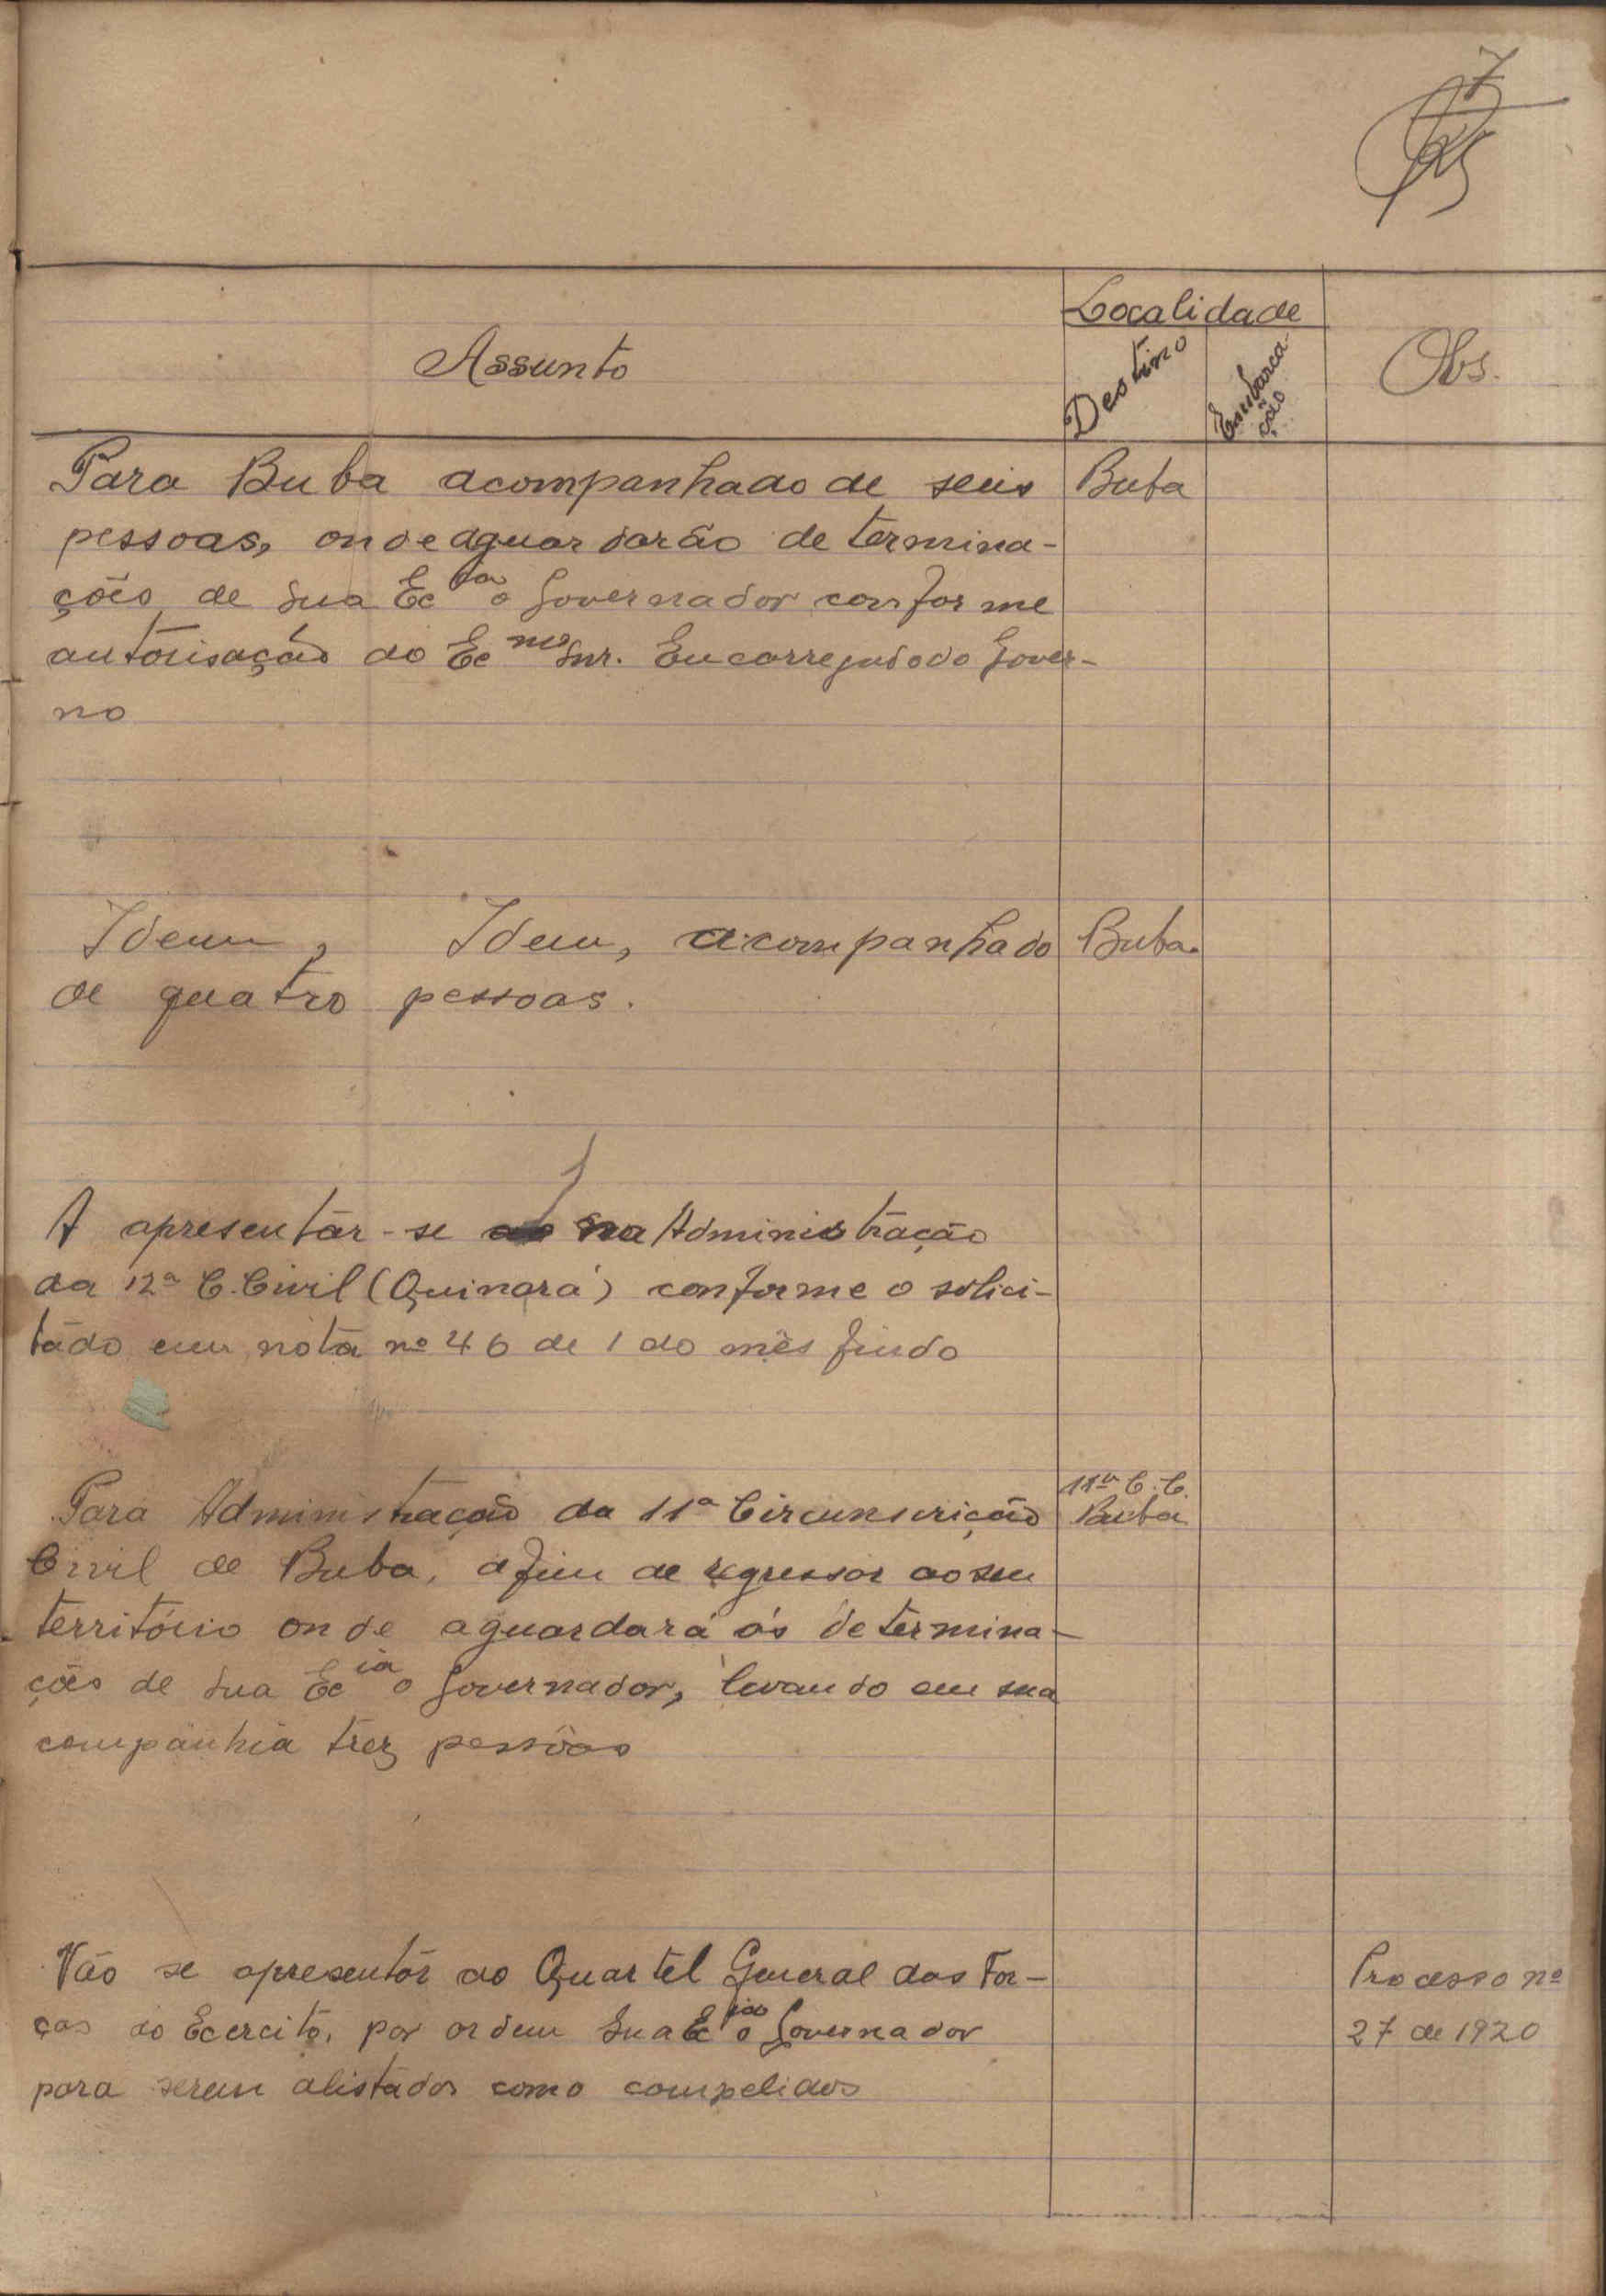 7
Localidade
Assunto
Destino
Embarca-
ção
Obs.
Para Buba acompanhado de seis
Buba
pessoas, onde aguardarão determina-
ções de Sua Ec cia o Governador conforme
autorisação do Ec mo Snr. Encarregado do Gover-
no
Idem, Idem, acompanhado
Buba.
de quatro pessoas.
A apresentar-se na Administração
da 12ª C. Civil (Quinará) conforme o solici-
tádo em nóta nº 46 de 1 do mês findo
11ª C. C.
Para Administração da 11ª Circunscrição
Buba
Civil de Buba, afim de regressar ao seu
território onde aguardará ás determina-
ções de Sua Ec ia o Governador, levando em sua
companhia trez pessôas
Vão se apresentár ao Quartel General das For-
Processo nº
ças do Ecercito, por ordem Sua Ec ia o Governador
27 de 1920
para serem alistados como compelidos